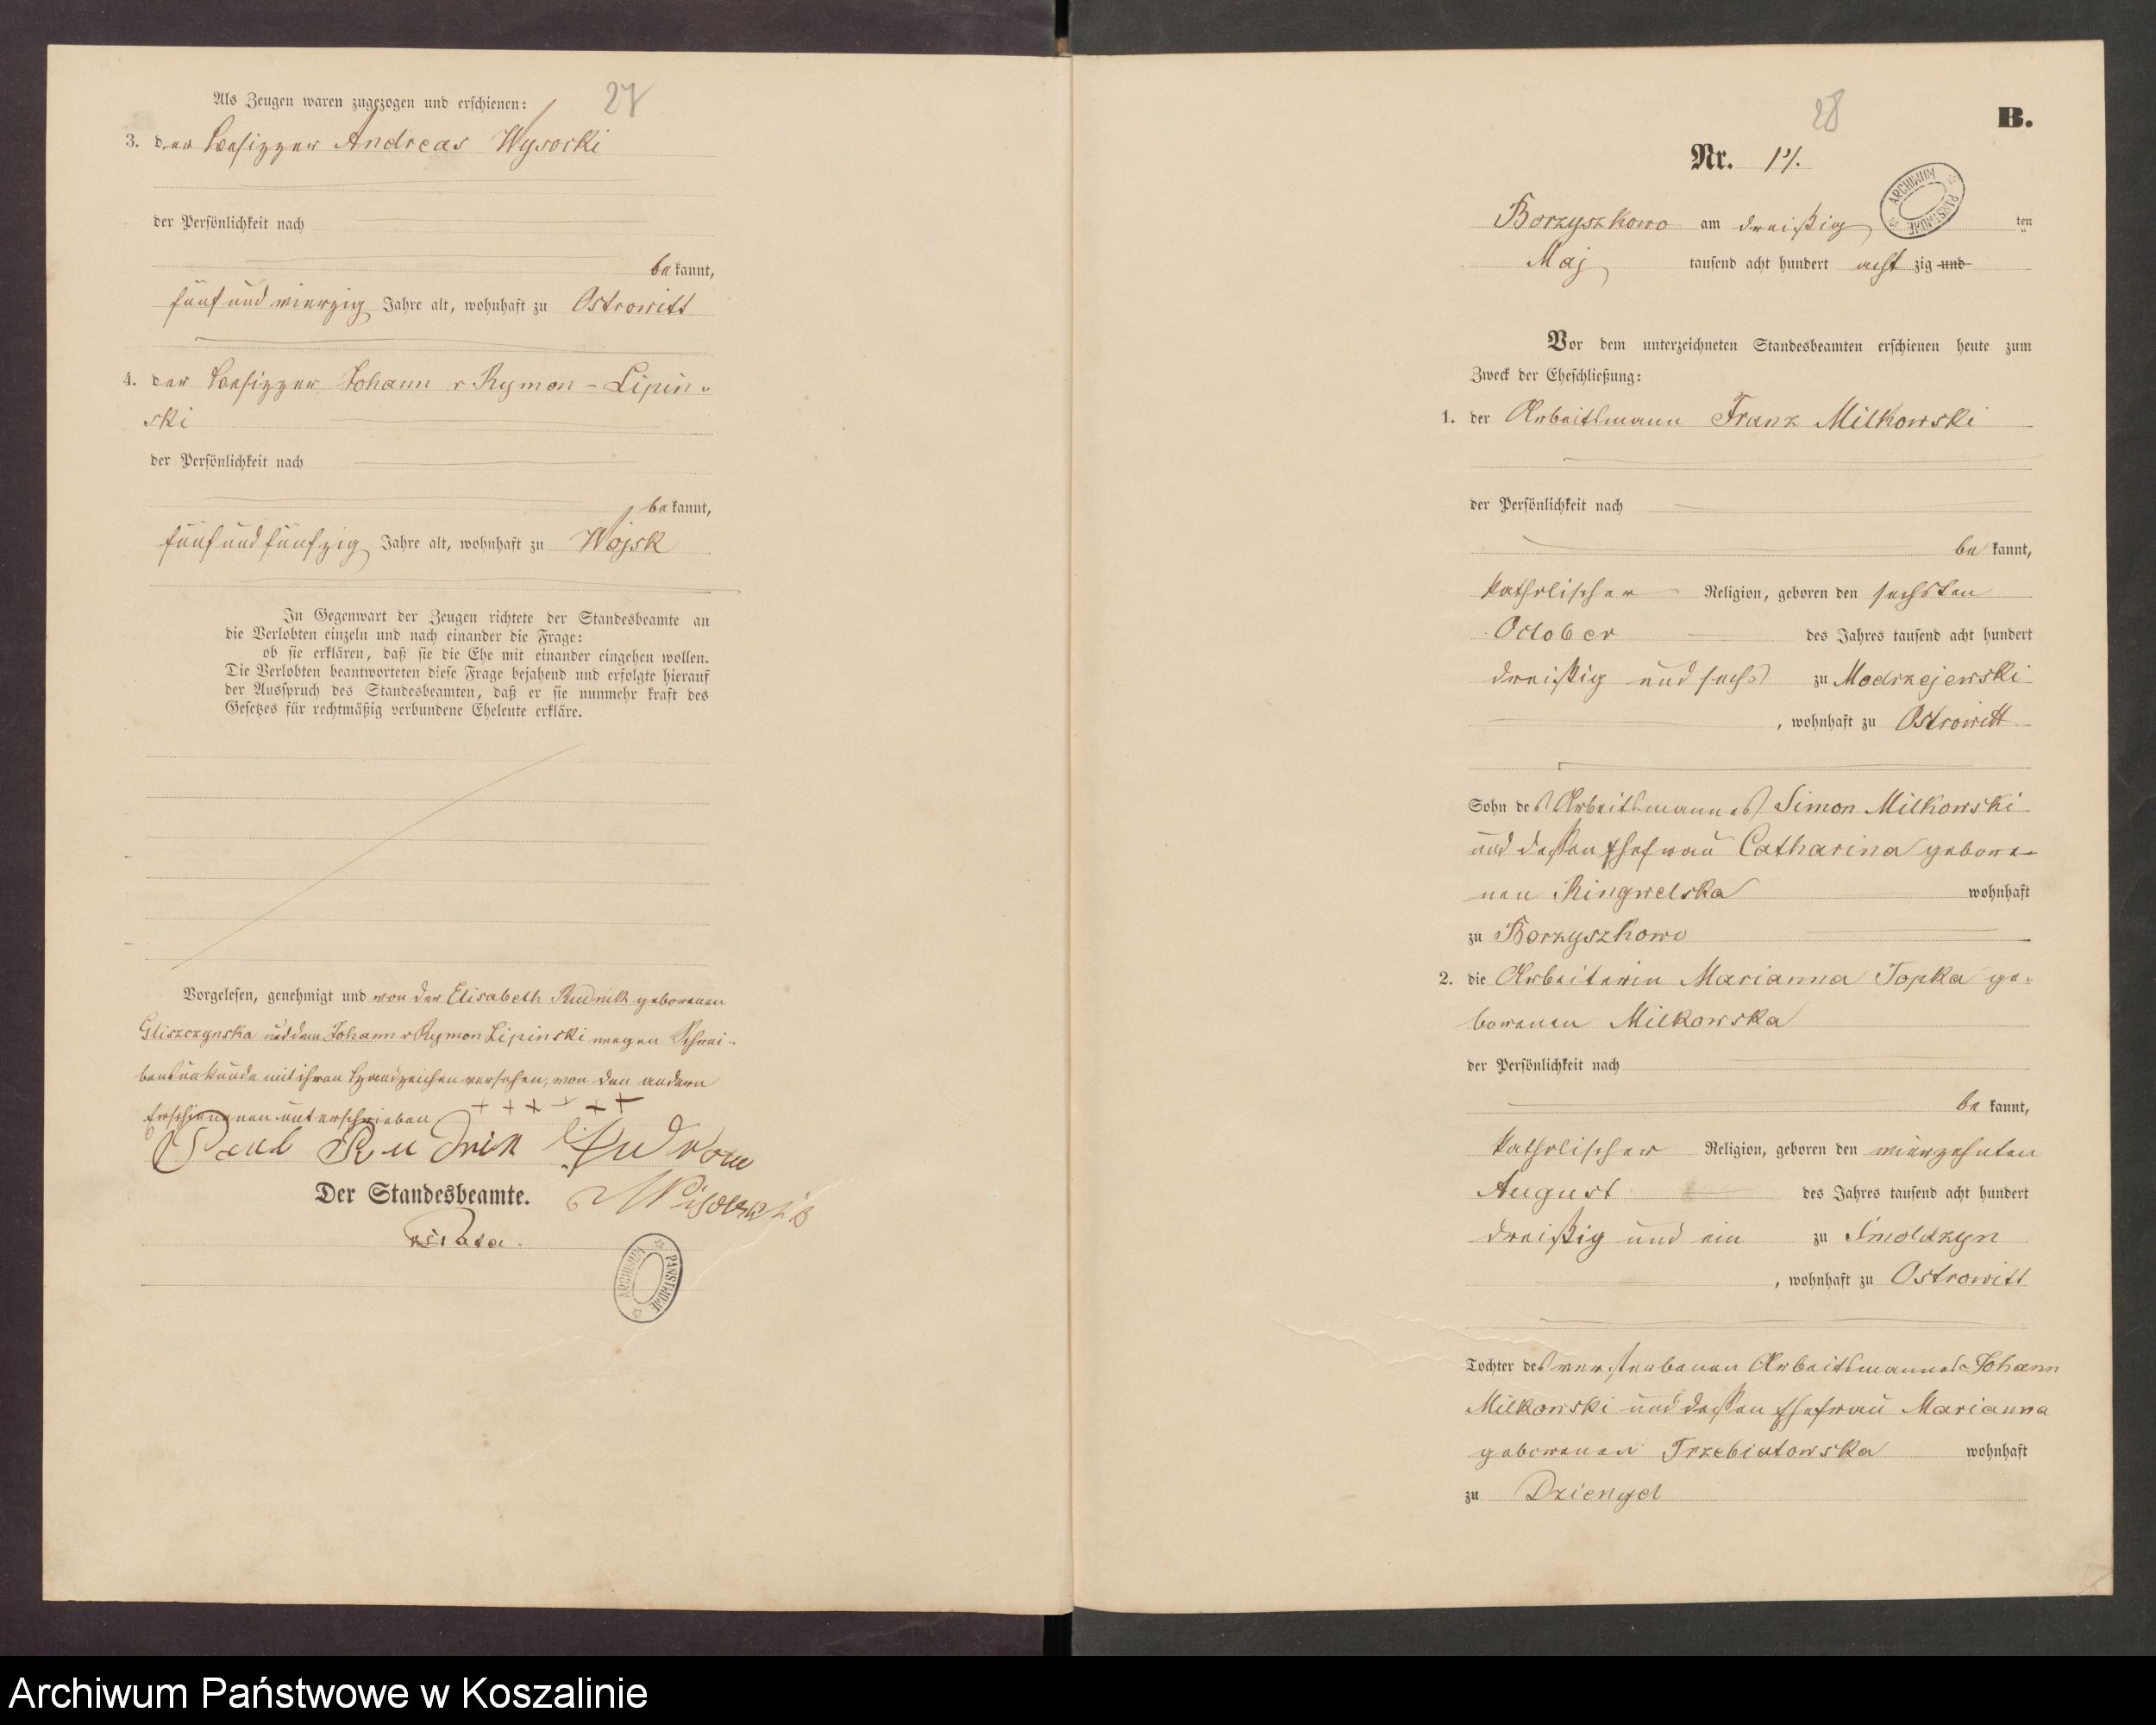 Als Zeugen waren zugezogen und erschienen:
27
3. der Besitzer Andreas Wysocki
der Persönlichkeit nach
be kannt,
fünf und vierzig Jahre alt, wohnhaft zu Ostrowitt
4. der Besitzer Johann v Rymon-Lipin-
ski
der Persönlichkeit nach
be kannt,
fünf und fünfzig Jahre alt, wohnhaft zu Wojsk
In Gegenwart der Zeugen richtete der Standesbeamte an
die Verlobten einzeln und nach einander die Frage:
ob sie erklären, daß sie die Ehe mit einander eingehen wollen.
Die Verlobten beantworteten diese Frage bejahend und erfolgte hierauf
der Ausspruch des Standesbeamten, daß er sie nunmehr kraft des
Gesetzes für rechtmäßig verbundene Eheleute erkläre.
Vorgelesen, genehmigt und von der Elisabeth Rudnik geborenen
Gliszczynska und dem Johann v Rymon Lipinski wegen Schrei-
bensunkunde mit ihren Handzeichen versehen, von den andern
Erschienenen unterschrieben
+ + + + + +
Paul Rudnik Andreas
Wisocki
Der Standesbeamte.
ARCHIWUM PAŃSTWOWE
28
B.
Nr. 14.
ARCHIWUM PAŃSTWOWE
Borzyszkowo am dreißig ten
Maj tausend acht hundert acht zig und
Vor dem unterzeichneten Standesbeamten erschienen heute zum
Zweck der Eheschließung:
1. der Arbeitsmann Franz Milkowski
der Persönlichkeit nach
be kannt,
katholischer Religion, geboren den sechsten
October des Jahres tausend acht hundert
dreißig und sechs zu Modrzejewski
, wohnhaft zu Ostrowitt
Sohn des Arbeitsmannes Simon Milkowski
und dessen Ehefrau Catharina gebore-
nen Ringwelska wohnhaft
zu Borzyszkowo
2. die Arbeiterin Marianna Topka ge-
borenen Milkowska
der Persönlichkeit nach
be kannt,
katholischer Religion, geboren den vierzehnten
August des Jahres tausend acht hundert
dreißig und ein zu Smoldzyn
, wohnhaft zu Ostrowitt
Tochter des verstorbenen Arbeitsmannes Johann
Milkowski und dessen Ehefrau Marianna
geborenen Trzebiatowska wohnhaft
zu Dziengel
Archiwum Państwowe w Koszalinie